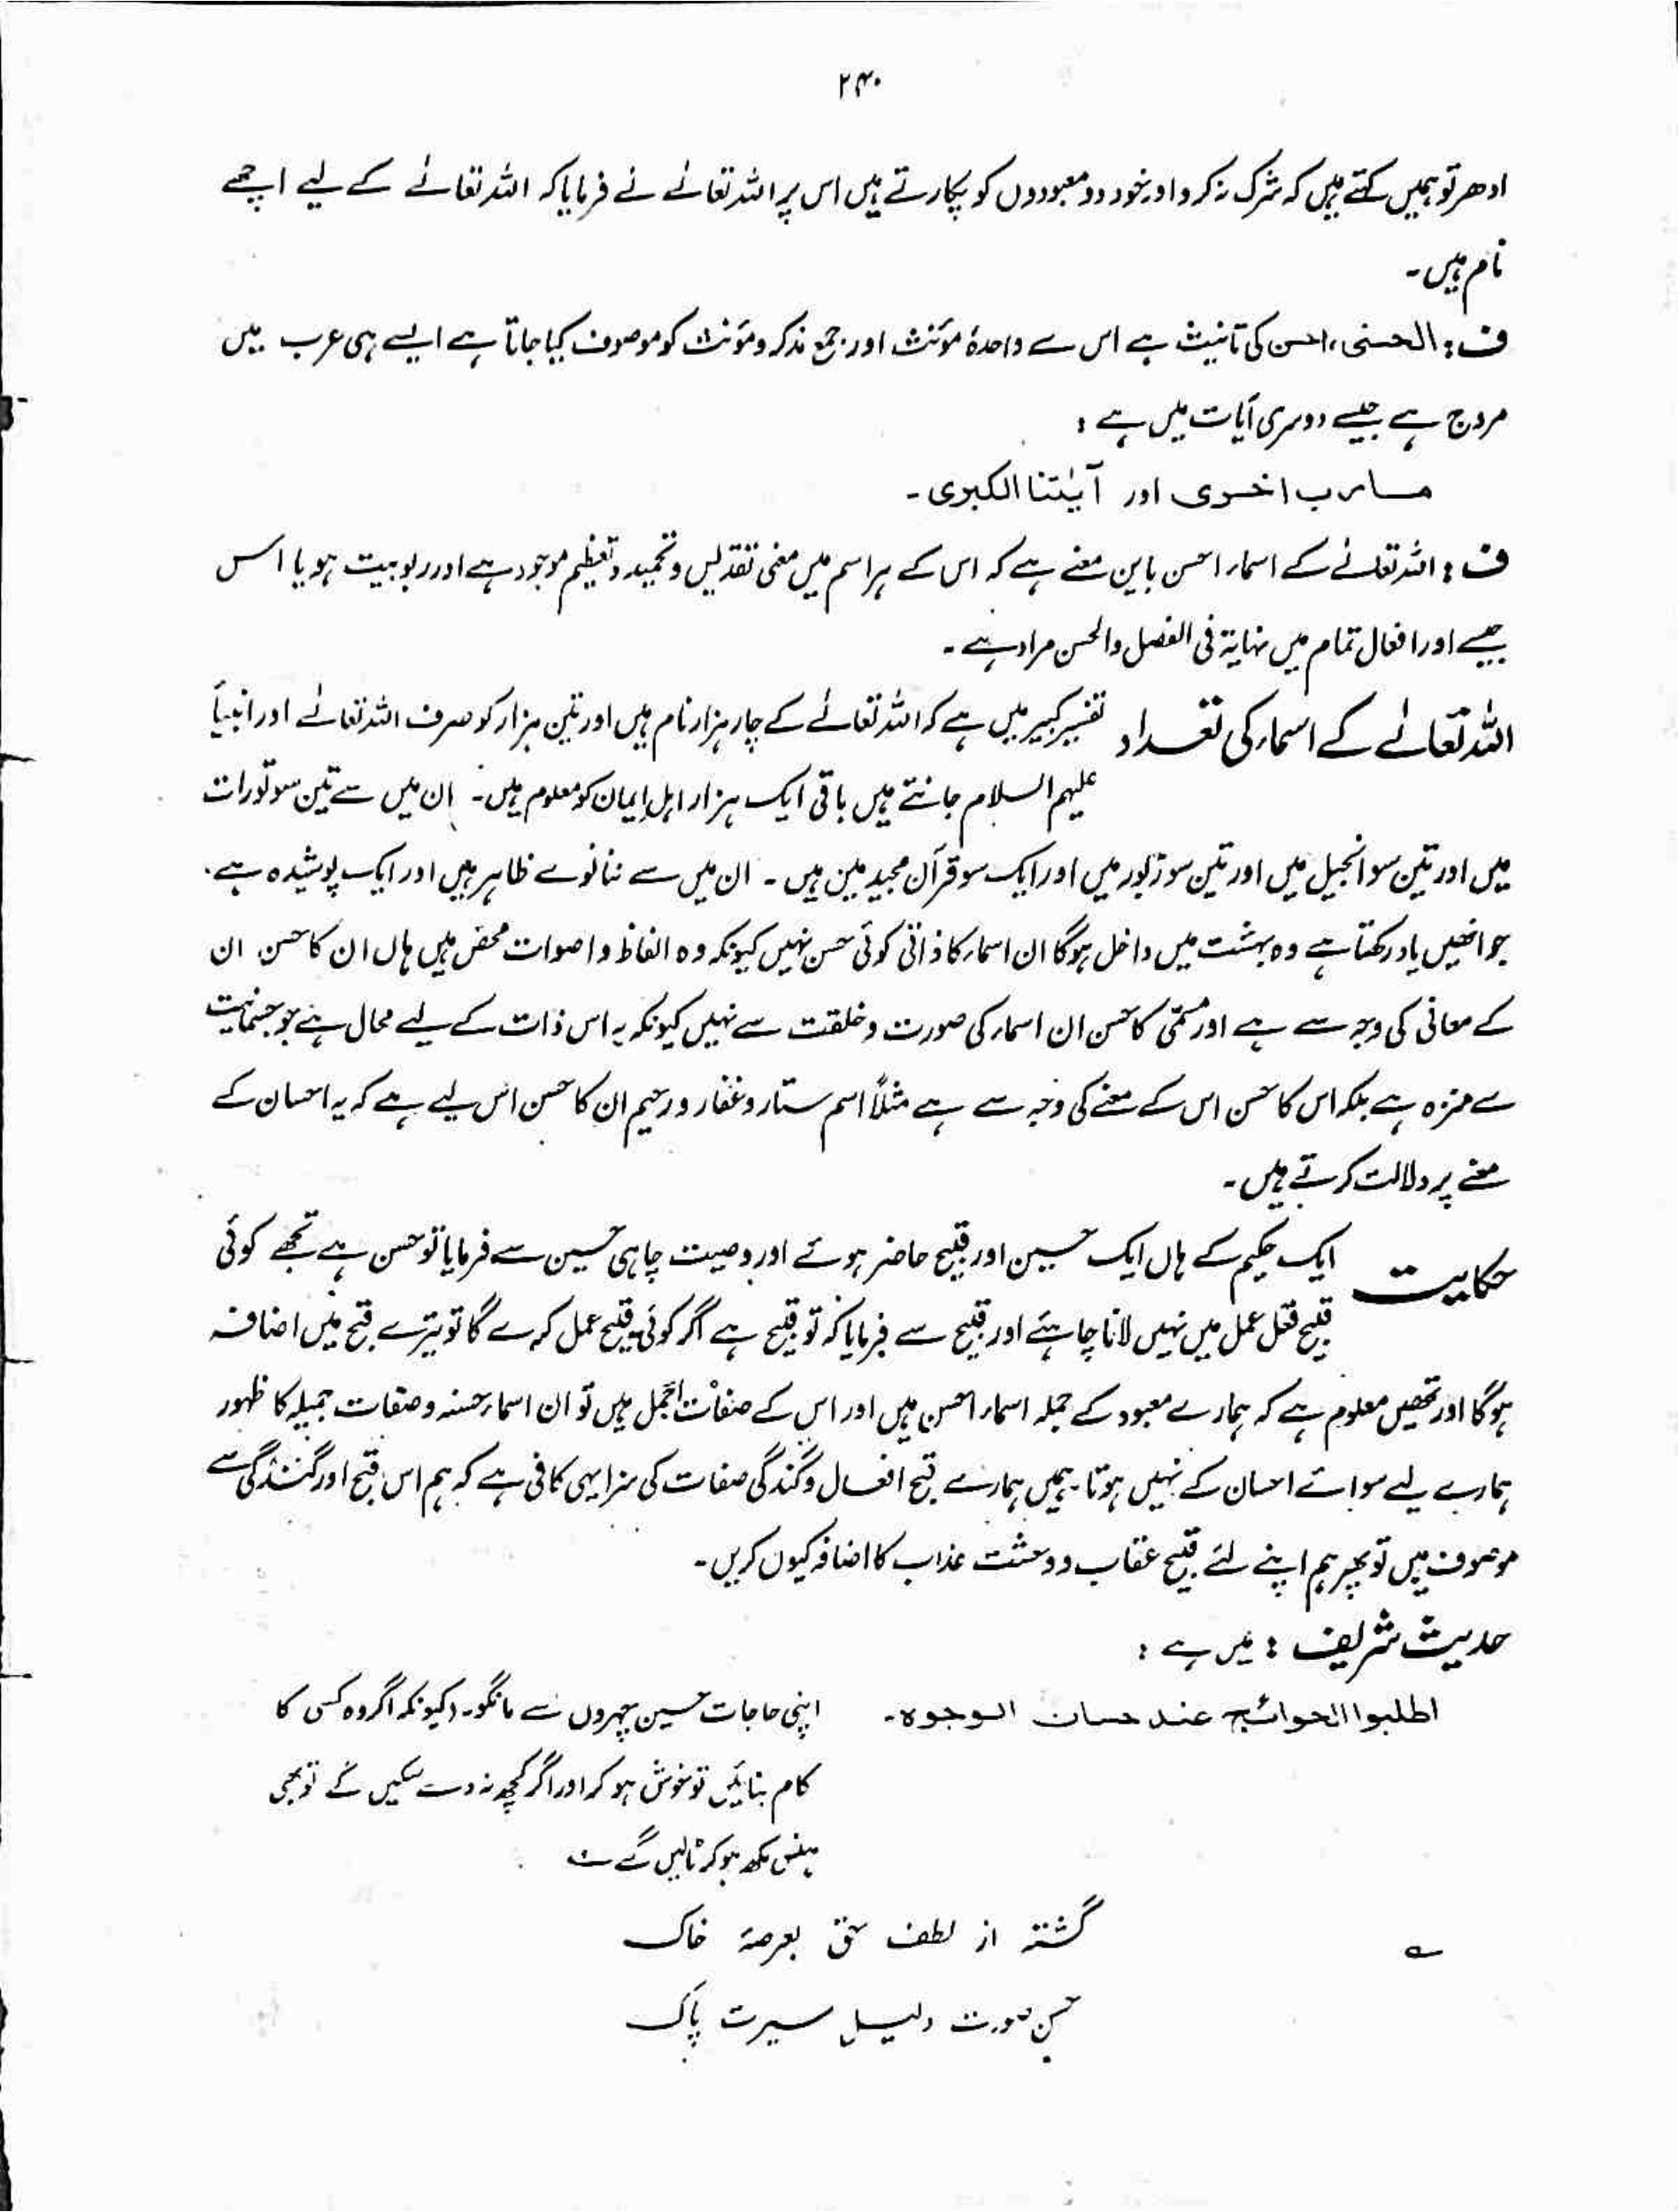 ۲۴۰
ادھر تو ہمیں کہتے ہیں کہ شرک نہ کرو اور خود دو معبودوں کو پکارتے ہیں اس پر اللہ تعالےٰ نے فرمایا کہ اللہ تعالےٰ کے لیے اچھے
نام ہیں۔
ف : الحسنیٰ، احسن کی تانیث ہے اس سے واحدۂ مؤنث اور جمع مذکر و مؤنث کو موصوف کیا جاتا ہے ایسے ہی عرب میں
مروج ہے جیسے دوسری آیات میں ہے :
مارب اخری اور آیٰتنا الکبری۔
ف : اللہ تعالےٰ کے اسماء احسن باین معنے ہے کہ اس کے ہر اسم میں معنی تقدیس و تحمید و تعظیم موجود ہے اور ربوبیت ہو یا اس
جیسے اور افعال تمام میں نہایۃ فی الفضل والحسن مراد ہے۔
اللہ تعالےٰ کے اسماء کی تعداد تفسیر کبیر میں ہے کہ اللہ تعالےٰ کے چار ہزار نام ہیں اور تین ہزار کو صرف اللہ تعالےٰ اور انبیأ
علیہم السلام جانتے ہیں باقی ایک ہزار اہل ایمان کو معلوم ہیں۔ ان میں سے تین سو تورات
میں اور تین سو انجیل میں اور تین سو زبور میں اور ایک سو قرآن مجید میں ہیں۔ ان میں سے ننانوے ظاہر ہیں اور ایک پوشیدہ ہے۔
جو انھیں یاد رکھتا ہے وہ بہشت میں داخل ہوگا ان اسماء کا ذاتی کوئی حسن نہیں کیونکہ وہ الفاظ و اصوات محض ہیں ہاں ان کا حسن ان
کے معانی کی وجہ سے ہے اور مسمّٰی کا حسن ان اسماء کی صورت و خلقت سے نہیں کیونکہ یہ اس ذات کے لیے محال ہے جو جسمانیت
سے منزہ ہے بلکہ اس کا حسن اس کے معنے کی وجہ سے ہے مثلاً اسم ستار و غفار و رحیم ان کا حسن اس لیے ہے کہ یہ احسان کے
معنے پر دلالت کرتے ہیں۔
حکایت ایک حکیم کے ہاں ایک حسین اور قبیح حاضر ہوئے اور وصیت چاہی حسین سے فرمایا تو حسن ہے تجھے کوئی
قبیح فعل عمل میں نہیں لانا چاہئے اور قبیح سے فرمایا کہ تو قبیح ہے اگر کوئی قبیح عمل کرے گا تو تیرے قبح میں اضافہ
ہوگا اور تمھیں معلوم ہے کہ ہمارے معبود کے جملہ اسماء احسن ہیں اور اس کے صفات اجمل ہیں تو ان اسماء حسنہ و صفات جمیلہ کا ظہور
ہمارے لیے سوائے احسان کے نہیں ہوتا۔ ہمیں ہمارے قبح افعال و گندگی صفات کی سزا یہی کافی ہے کہ ہم اس قبح اور گندگی سے
موصوف ہیں تو پھر ہم اپنے لئے قبیح عقاب و وحشت عذاب کا اضافہ کیوں کریں۔
حدیث شریف : میں ہے :
اطلبوا الحوائج عند حسان الوجوہ۔ اپنی حاجات حسین چہروں سے مانگو۔ (کیونکہ اگر وہ کسی کا
کام بنائیں تو خوش ہو کر اور اگر کچھ نہ دے سکیں گے تو بھی
ہنس مکھ ہو کر ٹالیں گے
گشتہ از لطف حق بعرصۂ خاک
حسن صورت دلیل سیرت پاک